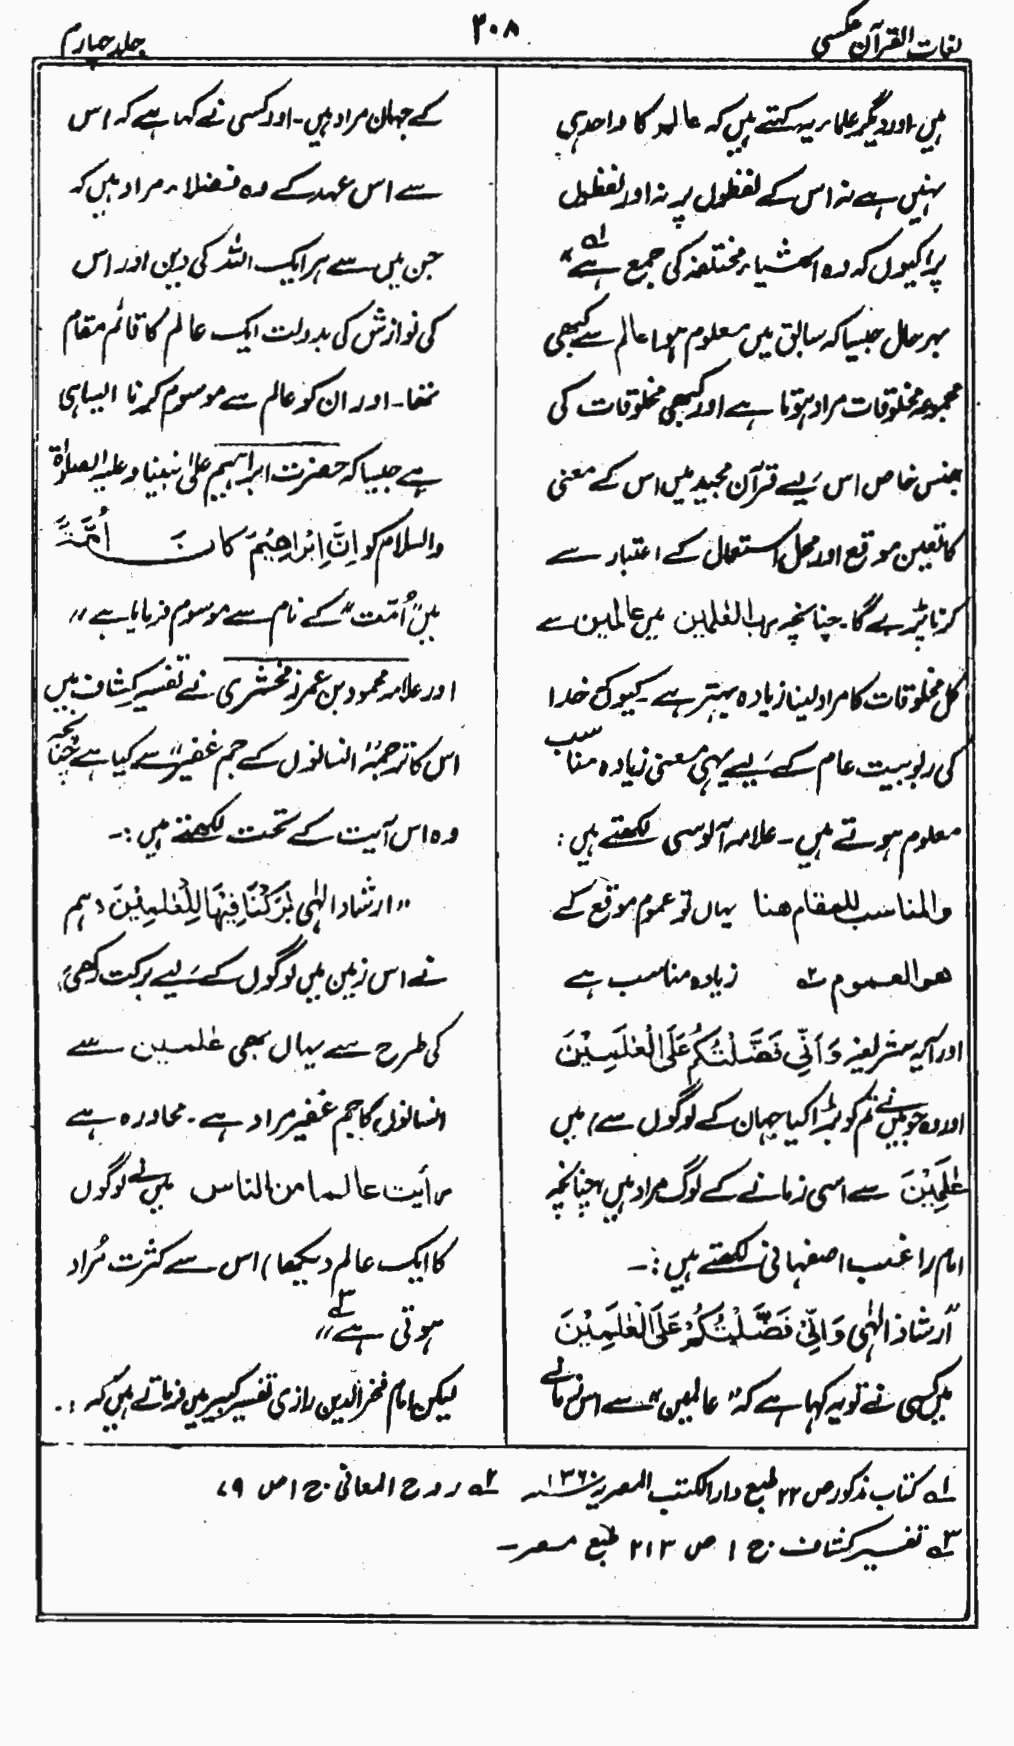 لغات القرآن عکسی
۳۰۸
جلد چہارم
ہیں۔ اور دیگر علماء یہ کہتے ہیں کہ عالم کا واحد ہی
نہیں ہے نہ اس کے لفظوں پر نہ اور لفظوں
پر، کیوں کہ وہ اشیاء مختلفہ کی جمع ہے لہ"
بہر حال جیسا کہ سابق میں معلوم ہوا عالم سے کبھی
مجموعہ مخلوقات مراد ہوتا ہے اور کبھی مخلوقات کی
جنس خاص اس لیے قرآن مجید میں اس کے معنی
کا تعین موقع اور محل استعمال کے اعتبار سے
کرنا پڑے گا۔ چنانچہ رب العٰلمین میں عالمین سے
کل مخلوقات کا مراد لینا زیادہ بہتر ہے۔ کیوں کہ خدا
کی ربوبیت عام کے لیے یہی معنی زیادہ مناسب
معلوم ہوتے ہیں۔ علامہ آلوسی لکھتے ہیں :
والمناسب للمقام ھنا یہاں تو عموم موقع کے
ھو العموم ۲ہ زیادہ مناسب ہے
اور آیہ شریفہ وَاَنِّی فَضَّلْتُكُمْ عَلَی الْعٰلَمِیْنَ
اور وہ جو میں نے تم کو بڑا کیا جہان کے لوگوں سے) میں
عٰلَمِیْنَ سے اسی زمانے کے لوگ مراد ہیں، چنانچہ
امام راغب اصفہانی لکھتے ہیں :۔
"ارشاد الٰہی وَاَنِّیْ فَضَّلْتُكُمْ عَلَی الْعٰلَمِیْنَ
میں کسی نے تو یہ کہا ہے کہ "عالمین" سے اس زمانے
کے جہان مراد ہیں۔ اور کسی نے کہا ہے کہ اس
سے اس عہد کے وہ فضلاء مراد ہیں کہ
جن میں سے ہر ایک اللہ کی دین اور اس
کی نوازش کی بدولت ایک عالم کا قائم مقام
تھا۔ اور ان کو عالم سے موسوم کرنا ایسا ہی
ہے جیسا کہ حضرت ابراہیم علیٰ نبینا و علیہ الصلوٰۃ
والسلام کو اِنَّ اِبْرَاهِیْمَ كَانَ اُمَّةً
میں "اُمّت" کے نام سے موسوم فرمایا ہے"
اور علامہ محمود بن عمر زمخشری نے تفسیر کشاف میں
اس کا ترجمہ "انسانوں کے جم غفیر" سے کیا ہے چنانچہ
وہ اس آیت کے تحت لکھتے ہیں :۔
"ارشاد الٰہی بٰرَكْنَا فِیْهَا لِلْعٰلَمِیْنَ (ہم
نے اس زمین میں لوگوں کے لیے برکت رکھی)
کی طرح سے یہاں بھی عٰلمین سے
انسانوں کا جم غفیر مراد ہے۔ محاورہ ہے
رأیت عالما من الناس (میں نے لوگوں
کا ایک عالم دیکھا) اس سے کثرت مُراد
ہوتی ہے ۳ہ"
لیکن امام فخر الدین رازی تفسیر کبیر میں فرماتے ہیں کہ :۔
۱ہ کتاب مذکور ص ۲۲ طبع دار الکتب المصریہ ۱۳۶۰ ۲ہ روح المعانی ج ۱ ص ۷۹
۳ہ تفسیر کشاف ج ۱ ص ۲۱۳ طبع مصر۔